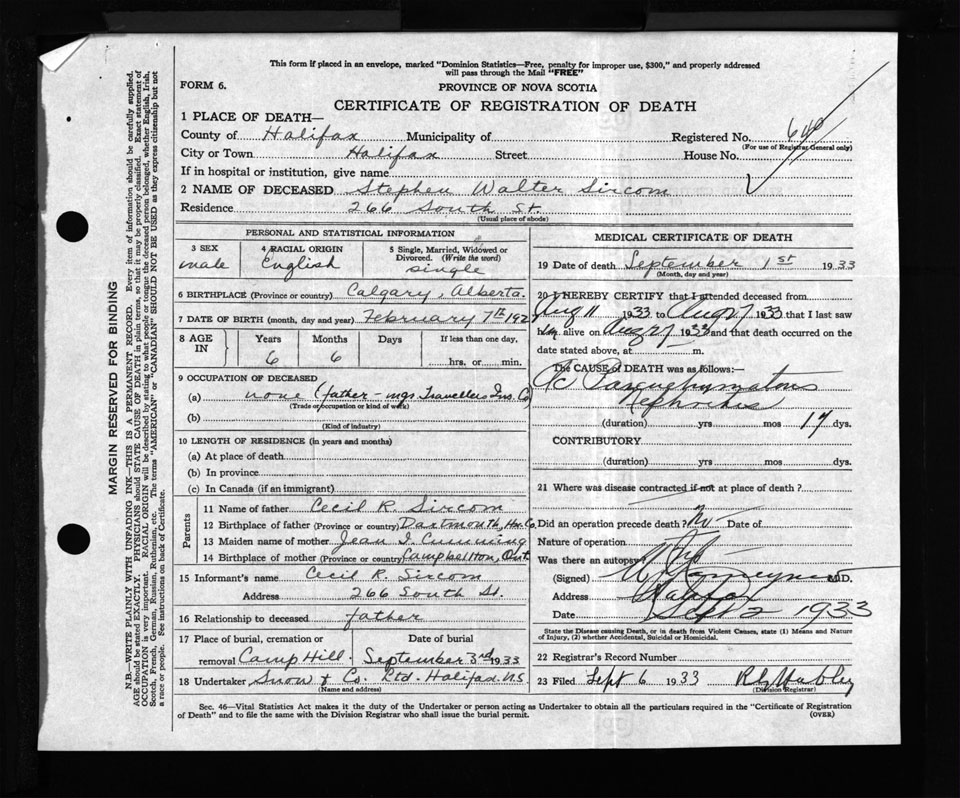 This form if placed in an envelope, marked "Dominion Statistics—Free, penalty for improper use, $300," and properly addressed
will pass through the Mail "FREE"
FORM 6.
PROVINCE OF NOVA SCOTIA
CERTIFICATE OF REGISTRATION OF DEATH
1 PLACE OF DEATH—
County of Halifax Municipality of Registered No. 640
(For use of Registrar General only)
City or Town Halifax Street House No.
If in hospital or institution, give name
2 NAME OF DECEASED Stephen Walter Sircom
Residence 266 South St.
(Usual place of abode)
PERSONAL AND STATISTICAL INFORMATION
3 SEX 4 RACIAL ORIGIN 5 Single, Married, Widowed or Divorced. (Write the word)
male English single
6 BIRTHPLACE (Province or country) Calgary, Alberta.
7 DATE OF BIRTH (month, day and year) February 7th 192
8 AGE IN Years Months Days If less than one day,
6 6 hrs. or min.
9 OCCUPATION OF DECEASED
(a) none (father - mgr Travellers Ins. Co
(Trade or occupation or kind of work)
(b)
(Kind of industry)
10 LENGTH OF RESIDENCE (in years and months)
(a) At place of death
(b) In province
(c) In Canada (if an immigrant)
Parents
11 Name of father Cecil R. Sircom
12 Birthplace of father (Province or country) Dartmouth, Hx. Co.
13 Maiden name of mother Jean I. Cumming
14 Birthplace of mother (Province or country) Campbellton, Ont.
15 Informant's name Cecil R. Sircom
Address 266 South St.
16 Relationship to deceased father
17 Place of burial, cremation or removal Camp Hill. Date of burial September 3rd 1933
18 Undertaker Snow & Co. Ltd. Halifax. N.S
(Name and address)
MEDICAL CERTIFICATE OF DEATH
19 Date of death September 1st 1933
(Month, day and year)
20 I HEREBY CERTIFY that I attended deceased from
Aug 11 1933 to Aug 27 1933 that I last saw
him alive on Aug 27 1933 and that death occurred on the
date stated above, at m.
The CAUSE OF DEATH was as follows:—
Parenchymatous
Nephritis
(duration) yrs mos 17 dys.
CONTRIBUTORY
(duration) yrs. mos. dys.
21 Where was disease contracted if not at place of death?
Did an operation precede death? No Date of
Nature of operation
Was there an autopsy? No
(Signed) M.D.
Address Halifax
Date Sept 2 1933
State the Disease causing Death, or in death from Violent Causes, state (1) Means and Nature
of Injury, (2) whether Accidental, Suicidal or Homicidal.
22 Registrar's Record Number
23 Filed Sept 6 1933
(Division Registrar)
Sec. 46—Vital Statistics Act makes it the duty of the Undertaker or person acting as Undertaker to obtain all the particulars required in the "Certificate of Registration
of Death" and to file the same with the Division Registrar who shall issue the burial permit.
(OVER)
MARGIN RESERVED FOR BINDING
N.B.—WRITE PLAINLY WITH UNFADING INK—THIS IS A PERMANENT RECORD. Every item of information should be carefully supplied.
AGE should be stated EXACTLY. PHYSICIANS should STATE CAUSE OF DEATH in plain terms, so that it may be properly classified. Exact statement of
OCCUPATION is very important. RACIAL ORIGIN will be described by stating to what people or tongue the deceased person belonged, whether English, Irish,
Scotch, French, German, Russian, Ruthenian, etc. The terms "AMERICAN" or "CANADIAN" SHOULD NOT BE USED as they express citizenship but not
a race or people. See instructions on back of Certificate.